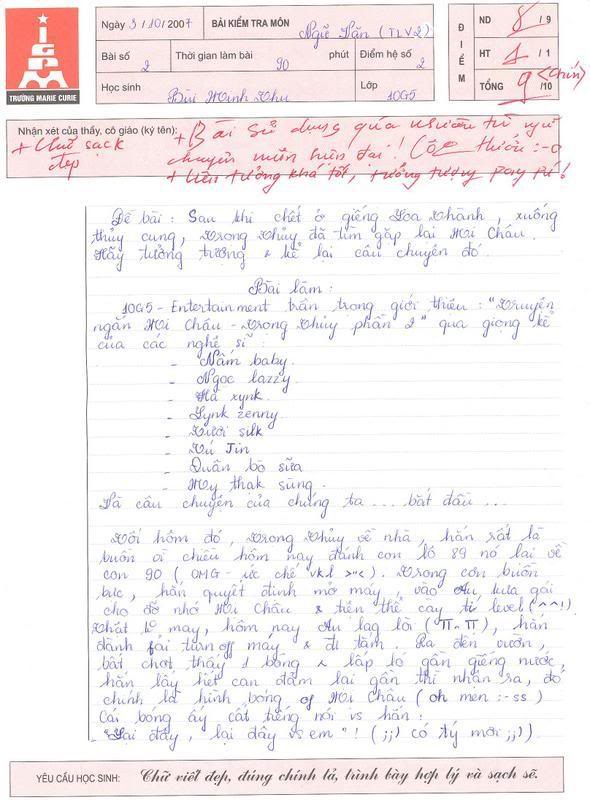 Ngày 3/10/2007
BÀI KIỂM TRA MÔN Ngữ Văn (TLV2)
Bài số 2
Thời gian làm bài 90 phút
Điểm hệ số 2
Học sinh Bùi Minh Thu
Lớp 10G5
TRƯỜNG MARIE CURIE
ĐIỂM
ND 8 / 9
HT 1 / 1
TỔNG 9 /10 (chín)
Nhận xét của thầy, cô giáo (ký tên):
+ Chữ sạch
đẹp
+ Bài sử dụng quá nhiều từ ngữ
chuyên môn hiện đại!
+ Liên tưởng khá tốt, tưởng tượng phong phú!
Đề bài: Sau khi chết ở giếng Loa Thành, xuống
thủy cung, Trọng Thủy đã tìm gặp lại Mị Châu.
Hãy tưởng tượng & kể lại câu chuyện đó.
Bài làm:
10G5 - Entertainment trân trọng giới thiệu: "Truyện
ngắn Mị Châu - Trọng Thủy phần 2" qua giọng kể
của các nghệ sĩ:
- Nấm baby.
- Ngọc lazzy.
- Hà xynk.
- Lynk zenny.
- Tươi silk
- Tú Jin
- Quân bò sữa
- My thak sùng.
Và câu chuyện của chúng ta... bắt đầu...
Tối hôm đó, Trọng Thủy về nhà, hắn rất là
buồn vì chiều hôm nay đánh con lô 89 nó lại về
con 90 (OMG - ức chế vkl >"<). Trong cơn buồn
bực, hắn quyết định mở máy, vào Au, lừa gái
cho đỡ nhớ Mị Châu & tiện thể cày tí level (^^!).
Nhất là may, hôm nay Au lag lòi (π.π), hắn
đành fải turn off máy & đi tắm. Ra đến vườn,
bất chợt thấy 1 bóng ^ lấp ló gần giếng nước,
hắn lấy hết can đảm lại gần thì nhận ra, đó
chính là hình bóng of Mị Châu (oh men :-ss)
Cái bóng ấy cất tiếng nói vs hắn:
"Lại đây, lại đây vs em"! (;;) có tý mời ;;)).
YÊU CẦU HỌC SINH: Chữ viết đẹp, đúng chính tả, trình bày hợp lý và sạch sẽ.